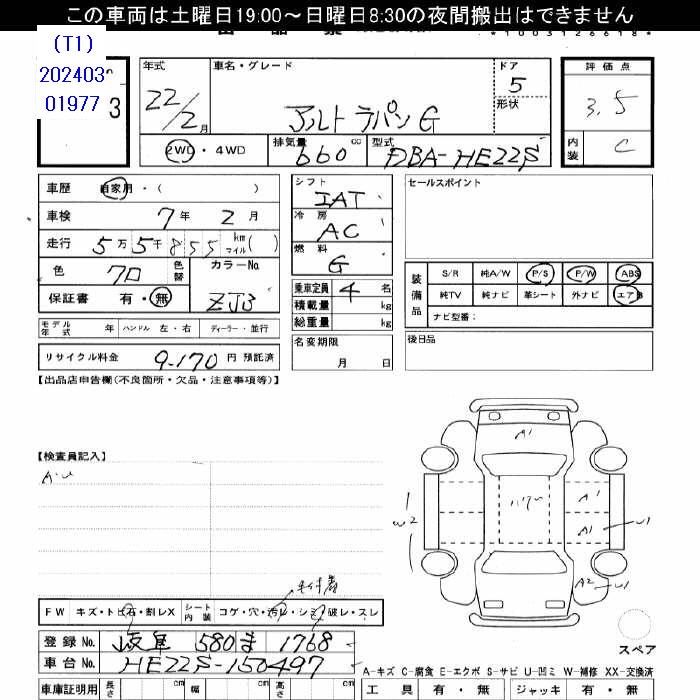 この車両は土曜日19:00～日曜日8:30の夜間搬出はできません
*1003126618*
(T1)
202403
01977
3
年式 22/2月
車名・グレード アルト ラパン G
ドア 5
形状
評価点 3.5
内装 C
2WD・4WD
排気量 660 cc
型式 DBA-HE22S
車歴 自家用・( )
車検 7年 2月
走行 5万5千855 km マイル( )
色 クロ 色替
カラーNo. ZJ3
保証書 有・無
シフト IAT
冷房 AC
燃料 G
乗車定員 4 名
積載量 kg
総重量 kg
セールスポイント
装備品
S/R 純A/W P/S P/W ABS
純TV 純ナビ 革シート 外ナビ エアB
ナビ型番:
モデル年式 年 ハンドル 左・右 ディーラー・並行
リサイクル料金 9,170 円 預託済
名変期限 月 日
後日品
【出品店申告欄(不良箇所・欠品・注意事項等)】
【検査員記入】
A・U
A1
W2
A1
A1 U1
A2 U1
スペア
FW キズ・トビ石・割レX シート内装 コゲ・穴・汚レ・シミ・破レ・スレ
登録No. 岐阜 580 ま 1768
車台No. HE22S-150497
車庫証明用 長さ cm 幅 cm 高さ cm
A-キズ C-腐食 E-エクボ S-サビ U-凹ミ W-補修 XX-交換済
工具 有・無 ジャッキ 有・無